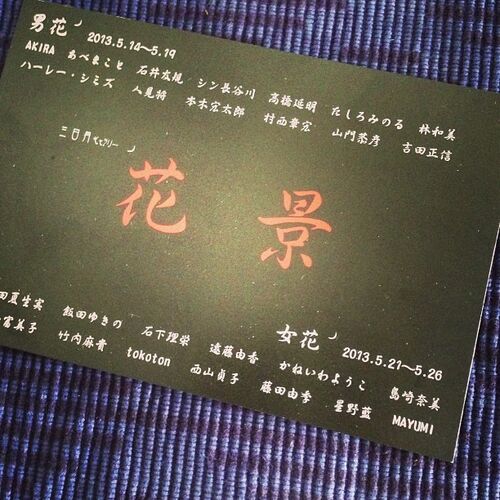 男花 2013.5.14～5.19
AKIRA あべまこと 石井友規 シン長谷川 高橋延明 たしろみのる 林和美
ハーレー・シミズ 人見将 本木宏太郎 村西章宏 山門恭彦 吉田正信
三日月ギャラリー
花 景
女花 2013.5.21～5.26
田夏生実 飯田ゆきの 石下理栄 遠藤由香 かねいわようこ 島崎奈美
富美子 竹内麻貴 tokoton 西山貞子 藤田由季 星野藍 MAYUMI